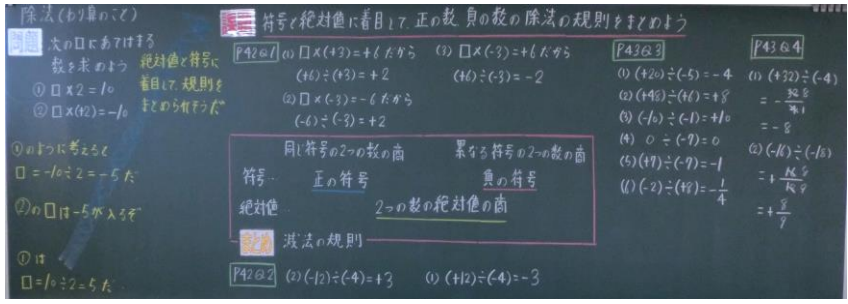 除法(わり算のこと)
問題 次の□にあてはまる
数を求めよう
① □×2=10
② □×(+2)=-10
絶対値と符号に
着目して、規則を
まとめられそうだ
①のように考えると
□=-10÷2=-5だ
②の□は-5が入るぞ
①は
□=10÷2=5だ
符号と絶対値に着目して、正の数、負の数の除法の規則をまとめよう
P42Q1 (1) □×(+3)=+6だから
(+6)÷(+3)=+2
(2) □×(-3)=-6だから
(-6)÷(-3)=+2
(3) □×(-3)=+6だから
(+6)÷(-3)=-2
同じ符号の2つの数の商 異なる符号の2つの数の商
符号… 正の符号 負の符号
絶対値… 2つの数の絶対値の商
まとめ 減法の規則
P42Q2 (2) (-12)÷(-4)=+3 (1) (+12)÷(-4)=-3
P43Q3
(1) (+20)÷(-5)=-4
(2) (+48)÷(+6)=+8
(3) (-10)÷(-1)=+10
(4) 0÷(-7)=0
(5) (+7)÷(-7)=-1
(6) (-2)÷(+8)=-1/4
P43Q4
(1) (+32)÷(-4)
=-32 8/4 1
=-8
(2) (-16)÷(-18)
=+16 8/18 9
=+8/9